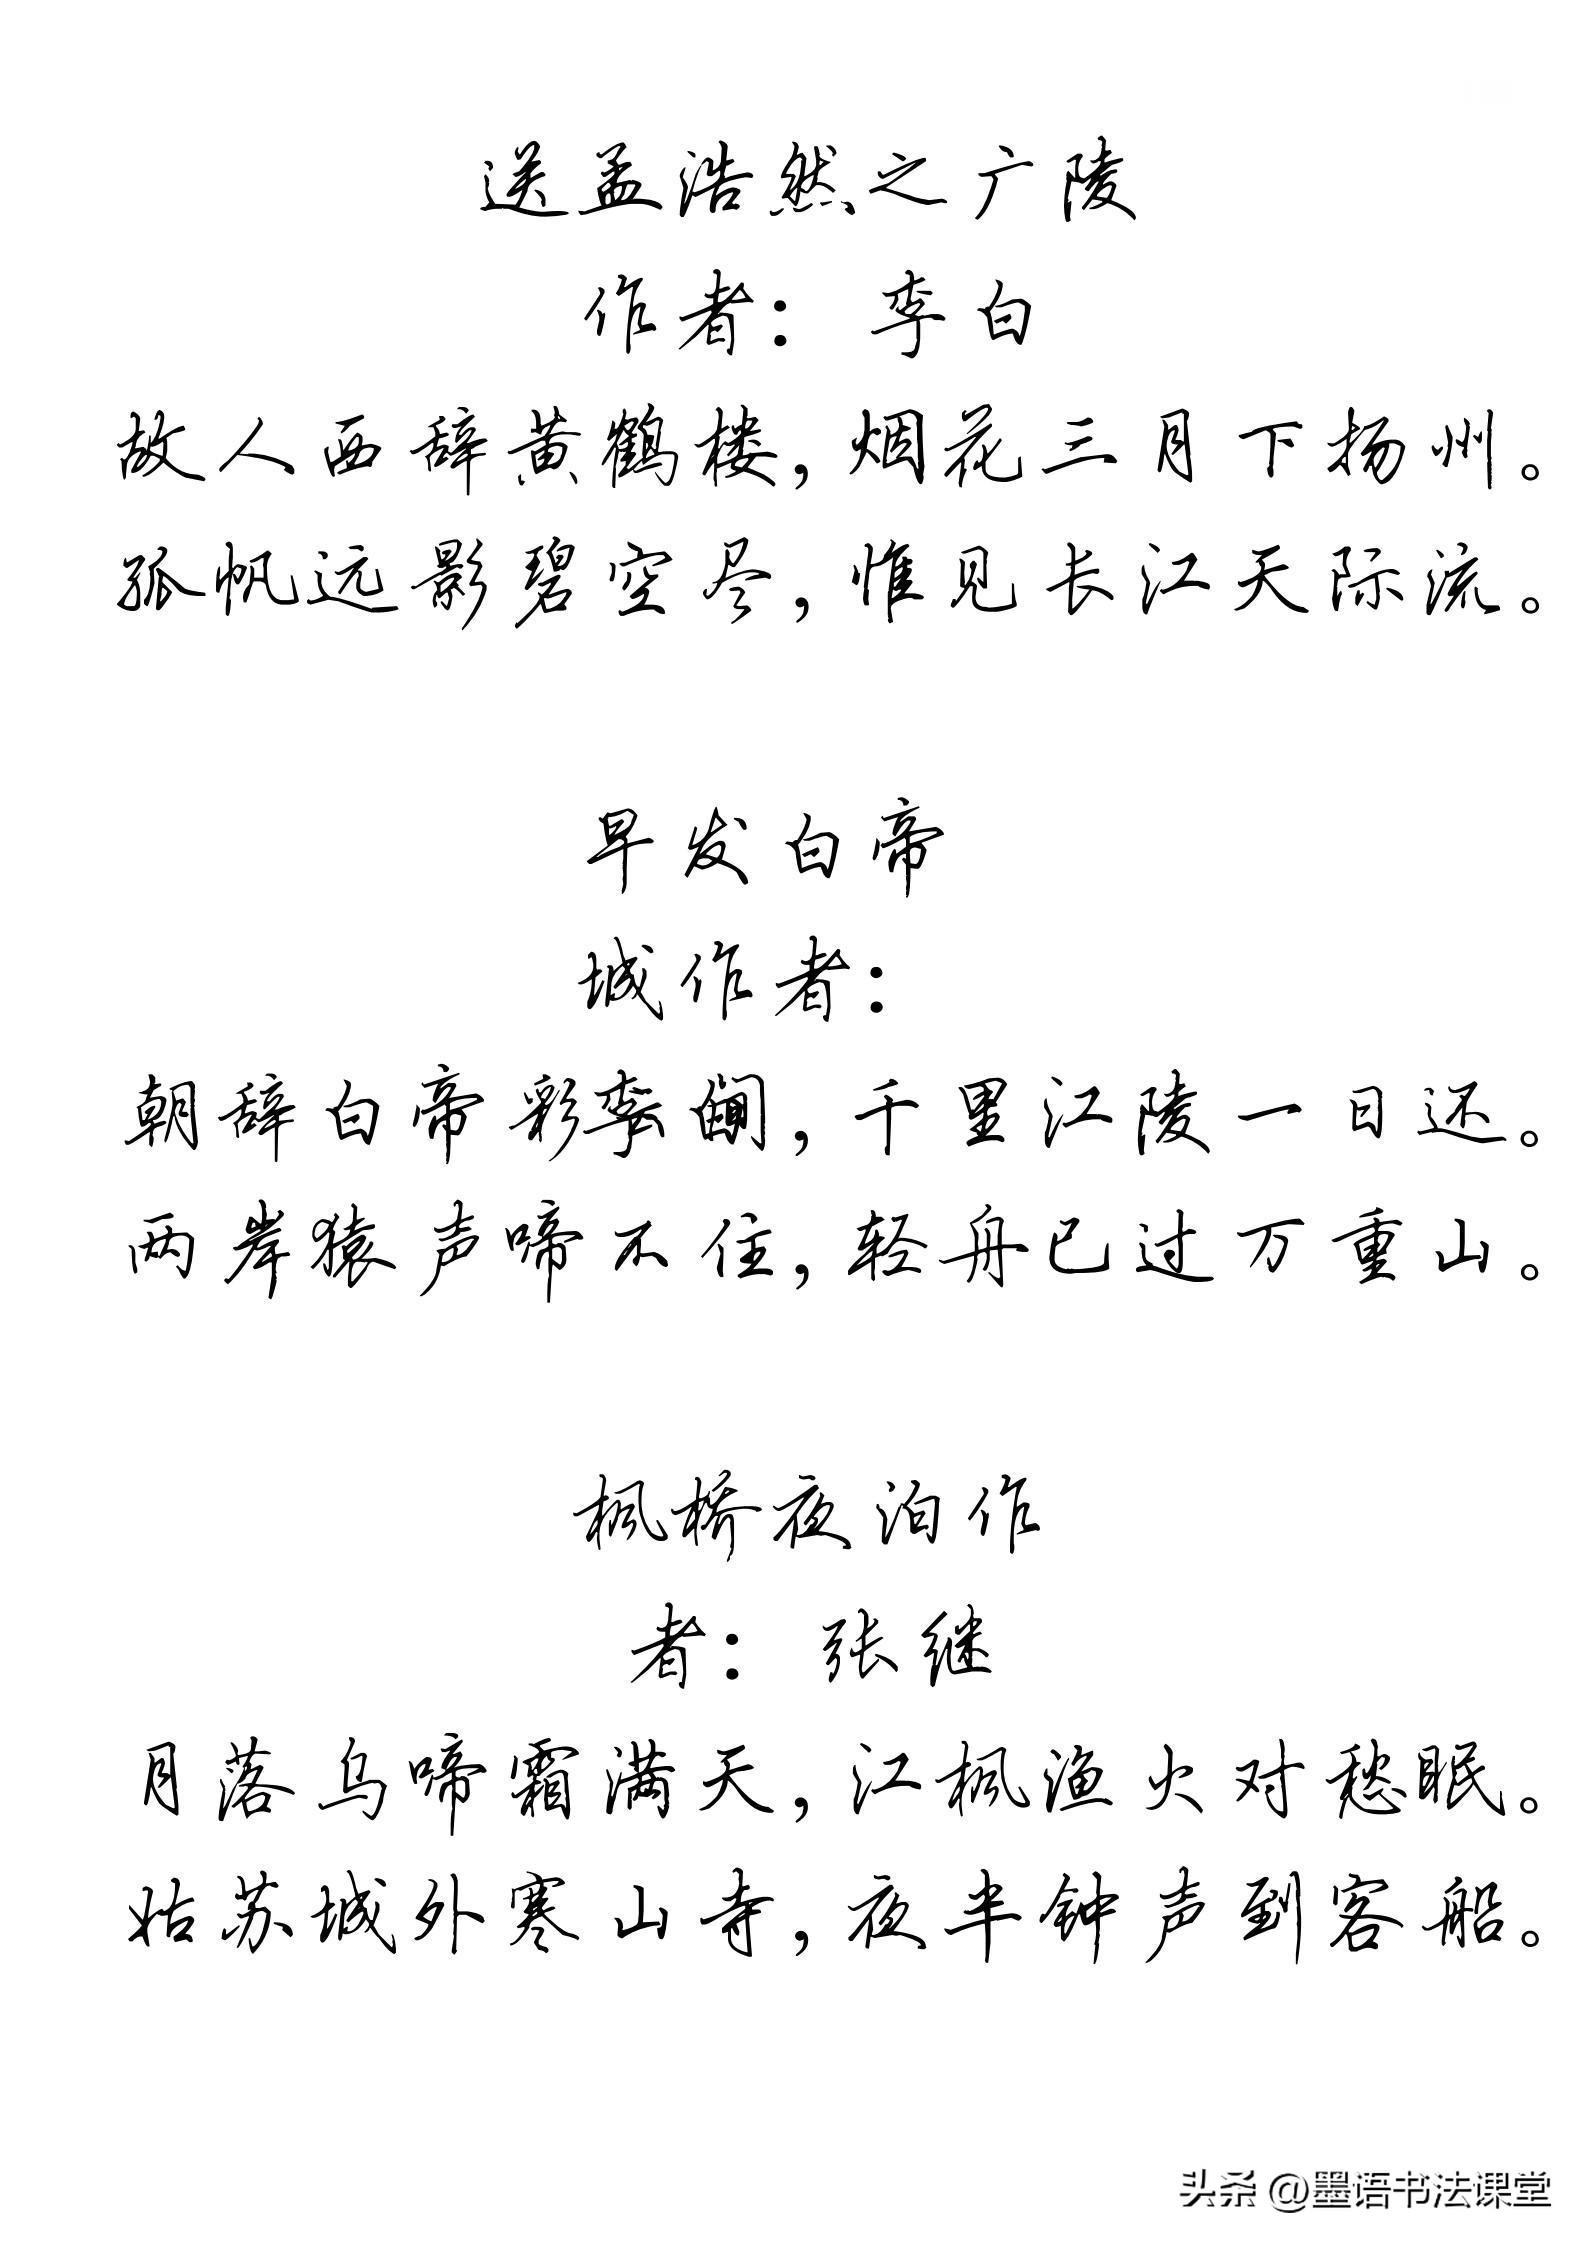 送孟浩然之广陵
作者：李白
故人西辞黄鹤楼，烟花三月下扬州。
孤帆远影碧空尽，惟见长江天际流。
早发白帝
城作者：
朝辞白帝彩，千里江陵一日还。
两岸猿声啼不住，轻舟已过万重山。
枫桥夜泊作
者：张继
月落乌啼霜满天，江枫渔火对愁眠。
姑苏城外寒山寺，夜半钟声到客船。
头条 @墨语书法课堂